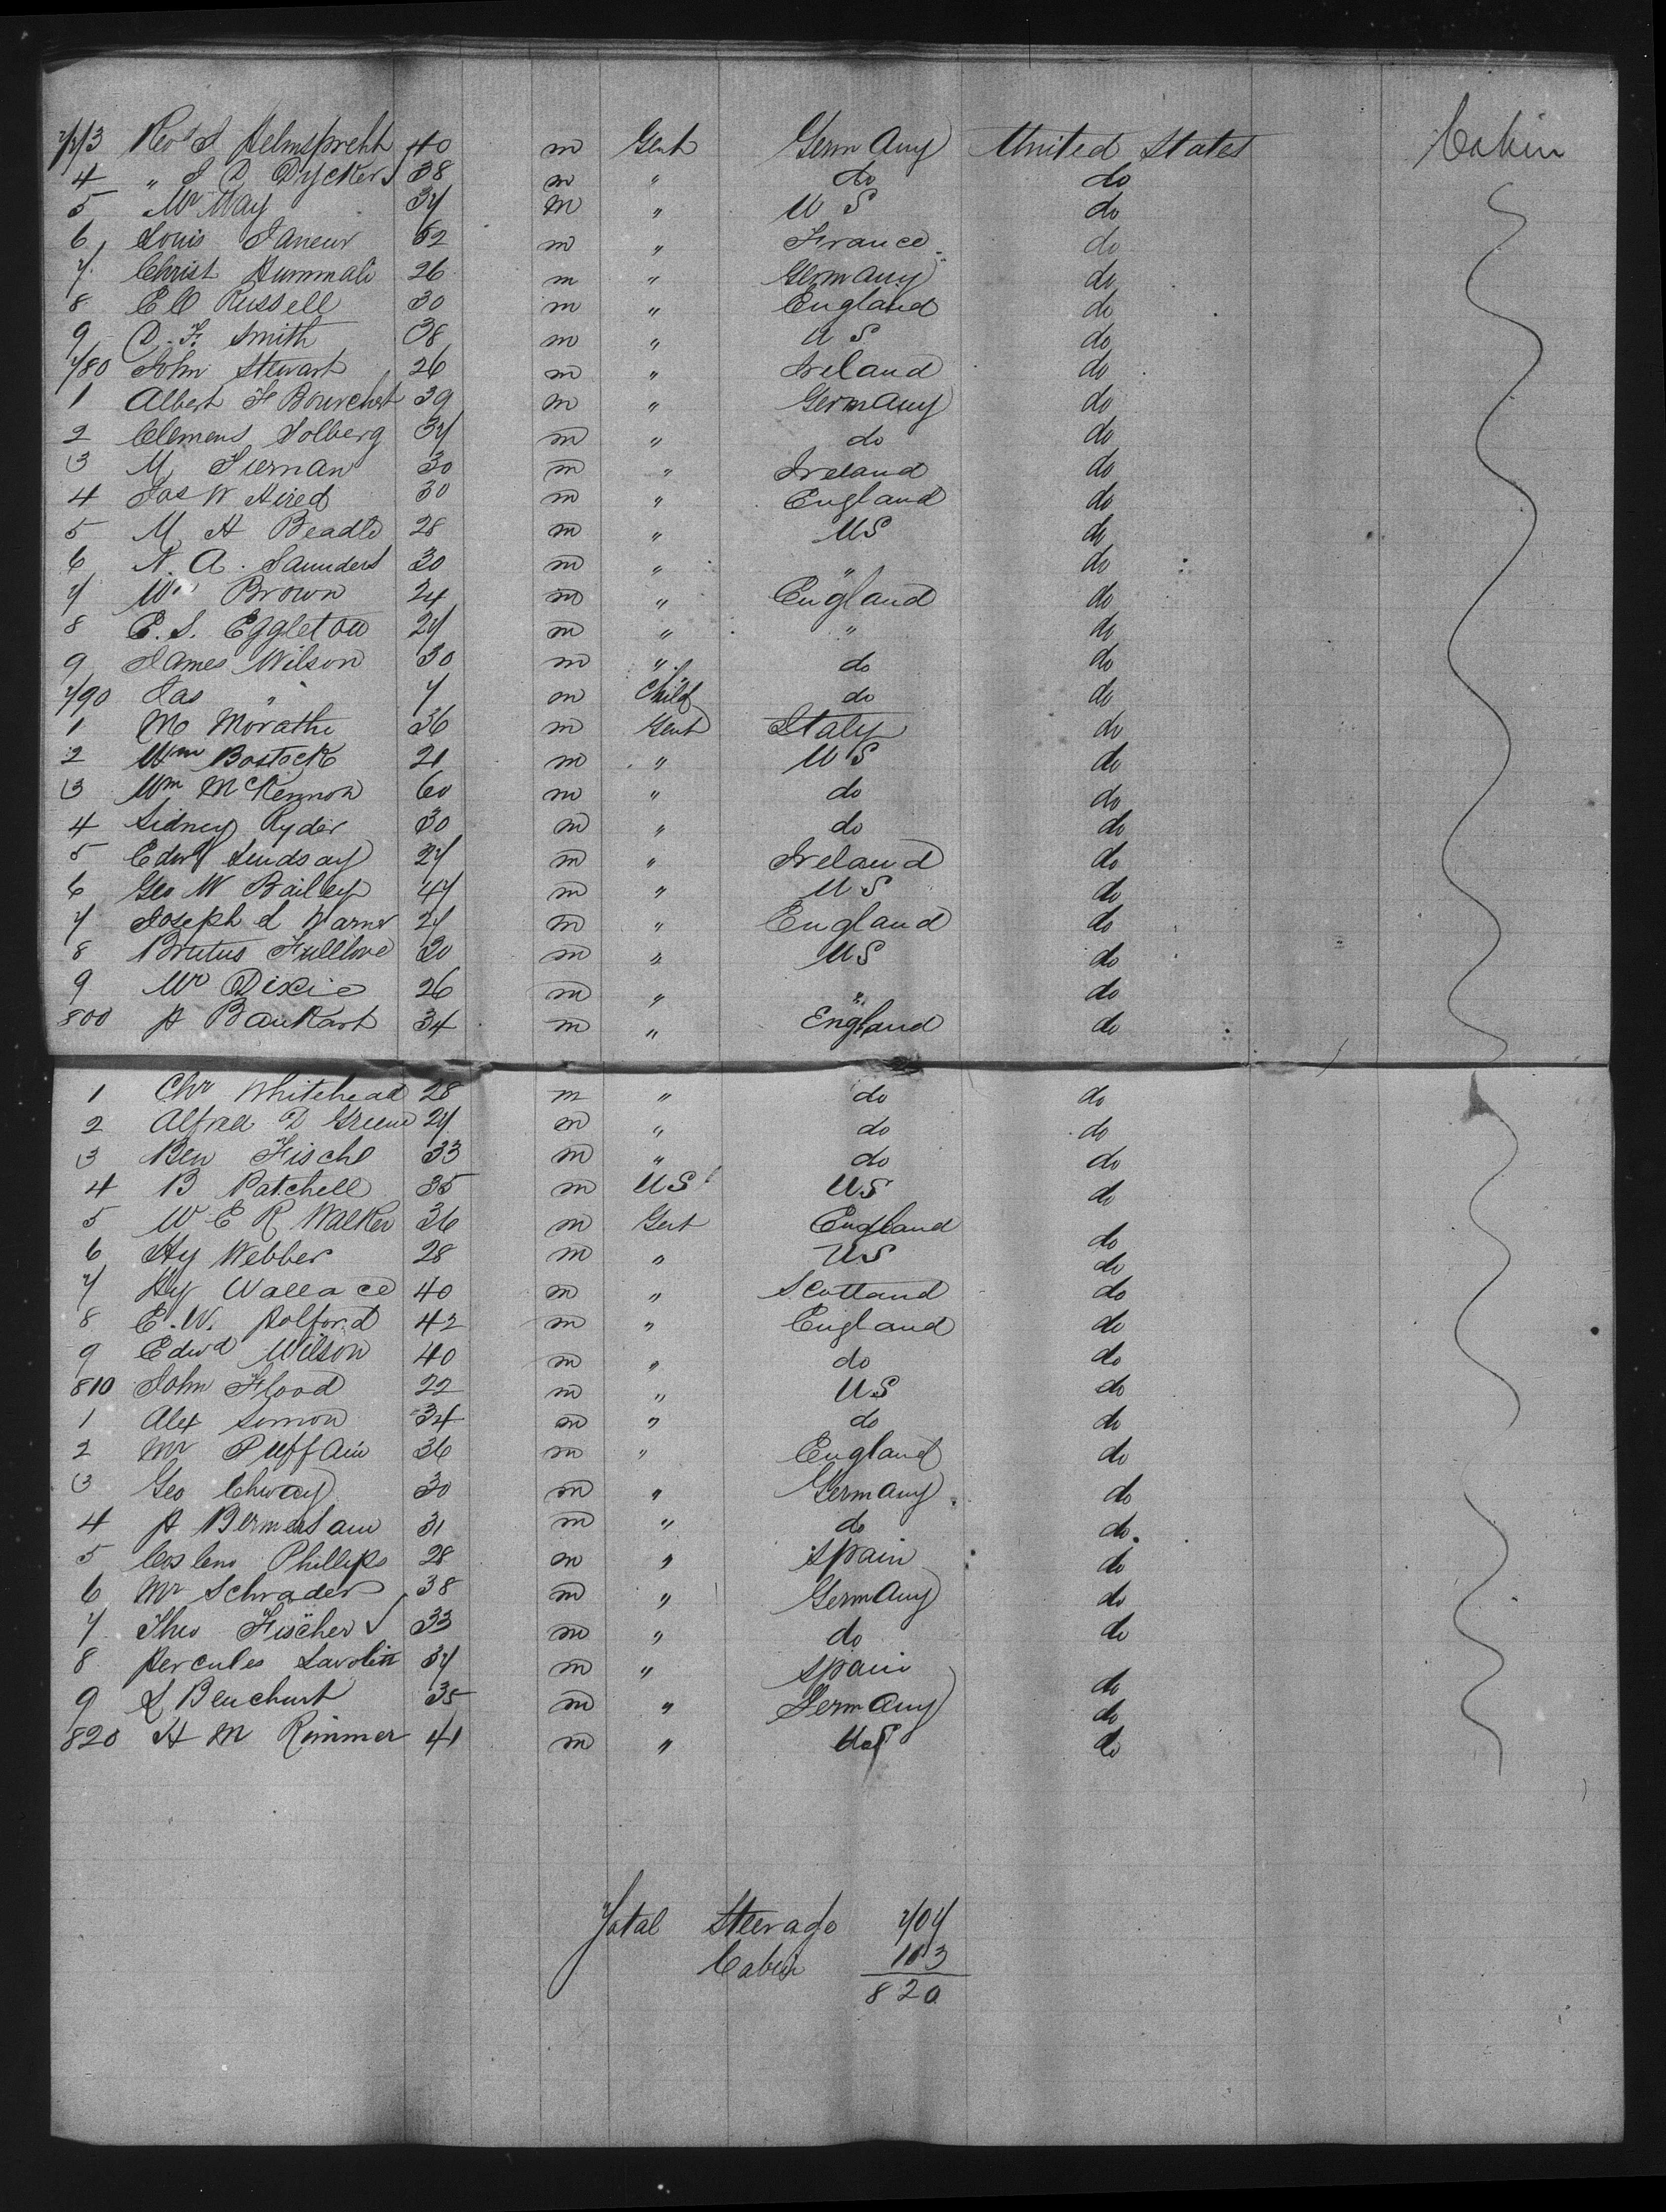 773 Revd J Helmsprecht 40 m Gent Germany United States Cabin
4 " J D Dyckers 38 m " do do
5 Mr May 37 m " U S do
6 Louis Janeur 52 m " France do
7 Christ Hummali 26 m " Germany do
8 E C Russell 30 m " England do
9 D. F. Smith 38 m " U S do
780 John Stewart 26 m " Ireland do
1 Albert F Bourchert 39 m " Germany do
2 Clemens Solberg 37 m " do do
3 M Tiernan 30 m " Ireland do
4 Jas W Aired 30 m " England do
5 M H Beadle 28 m " US do
6 N. A. Saunders 30 m " " do
7 Wm Brown 24 m " England do
8 E. S. Eggleton 27 m " " do
9 James Wilson 30 m " do do
790 Jas " 7 m Child do do
1 M Morathi 36 m Gent Italy do
2 Wm Bostock 21 m " U S do
3 Wm McKennon 60 m " do do
4 Sidney Ryder 30 m " do do
5 Edwd Lindsay 27 m " Ireland do
6 Geo W Bailey 47 m " U S do
7 Joseph L Warner 27 m " England do
8 Brutus Fulllove 20 m " US do
9 Mr Dixie 26 m " " do
800 H Bankart 34 m " England do
1 Chr Whitehead 28 m " do do
2 Alfred D Greene 27 m " do do
3 Ben Fischl 33 m " do do
4 B Patchell 35 m US US do
5 W E R Walker 36 m Gent England do
6 Hy Webber 28 m " US do
7 Hy Wallace 40 m " Scotland do
8 E. W. Holford 42 m " England do
9 Edwd Wilson 40 m " do do
810 John Flood 22 m " US do
1 Alex Simon 34 m " do do
2 Mr Puffain 36 m " England do
3 Geo Chway 30 m " Germany do
4 H 31 m " do do
5 Phillips 28 m " Spain do
6 Mr Schrader 38 m " Germany do
7 Theo Fischer 33 m " do do
8 Hercules 37 m " Spain do
9 L Benchurt 35 m " Germany do
820 H M Rimmer 41 m " US do
Total Steerage 707
Cabin 113
820